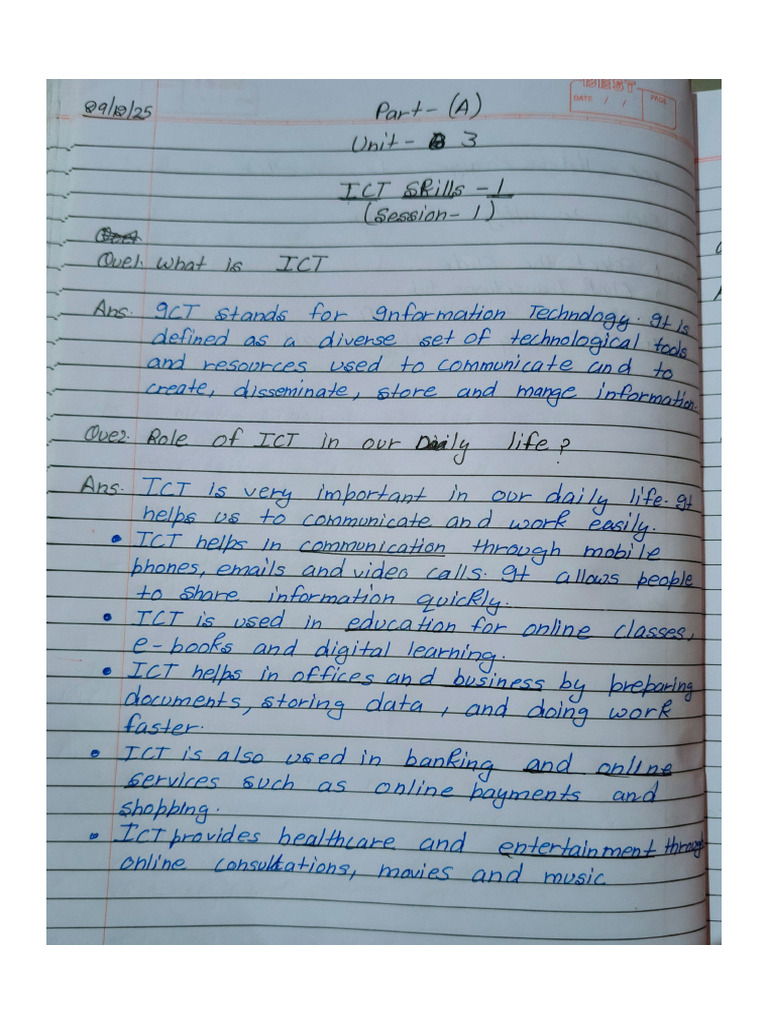 BEST
DATE / / PAGE
29/12/25
Part - (A)
Unit - 3
ICT Skills - 1
(Session - 1)
Que1. What is ICT
Ans. ICT stands for Information Technology. It is
defined as a diverse set of technological tools
and resources used to communicate and to
create, disseminate, store and mange information.
Que2. Role of ICT in our Daily life?
Ans. ICT is very important in our daily life. It
helps us to communicate and work easily.
• ICT helps in communication through mobile
phones, emails and video calls. It allows people
to share information quickly.
• ICT is used in education for online classes,
e-books and digital learning.
• ICT helps in offices and business by preparing
documents, storing data, and doing work
faster.
• ICT is also used in banking and online
services such as online payments and
shopping.
• ICT provides healthcare and entertainment through
online consultations, movies and music